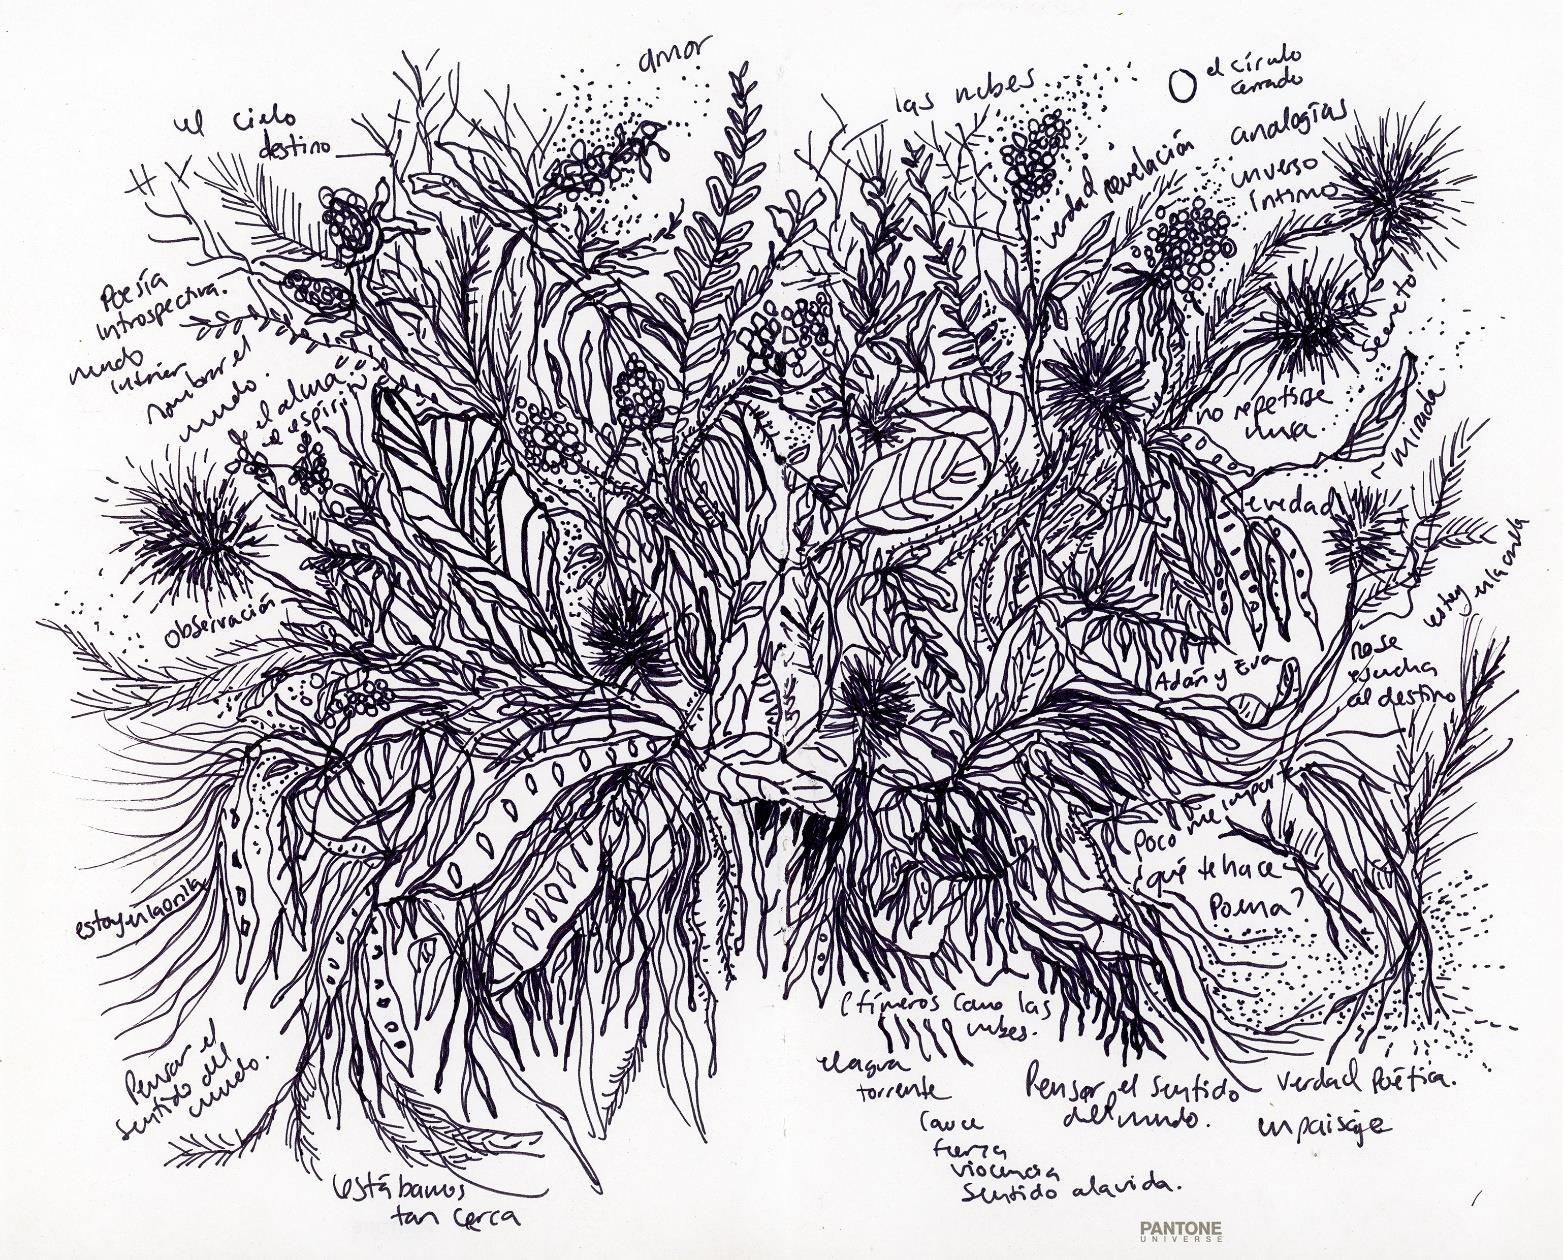 amor
el cielo
destino
las nubes
el círculo
cerrado
analogías
inverso
íntimo
verdad revelación
Poesía
introspectiva.
mundo
interior
nombrar el
mundo.
el alma
espíritu
secreto
no repetirse
nunca.
mirada
levedad
estoy en la onda
observación
Adán y Eva
no se
escucha
al destino
Poco me importa
¿qué te hace
Poema?
estoy en la orilla
Efímeros como las
nubes.
el agua
torrente
cauce
fuerza
violencia
sentido a la vida.
Pensar el sentido
del mundo.
verdad Poética.
un paisaje
Pensar el
sentido del
mundo.
estábamos
tan cerca
PANTONE
UNIVERSE